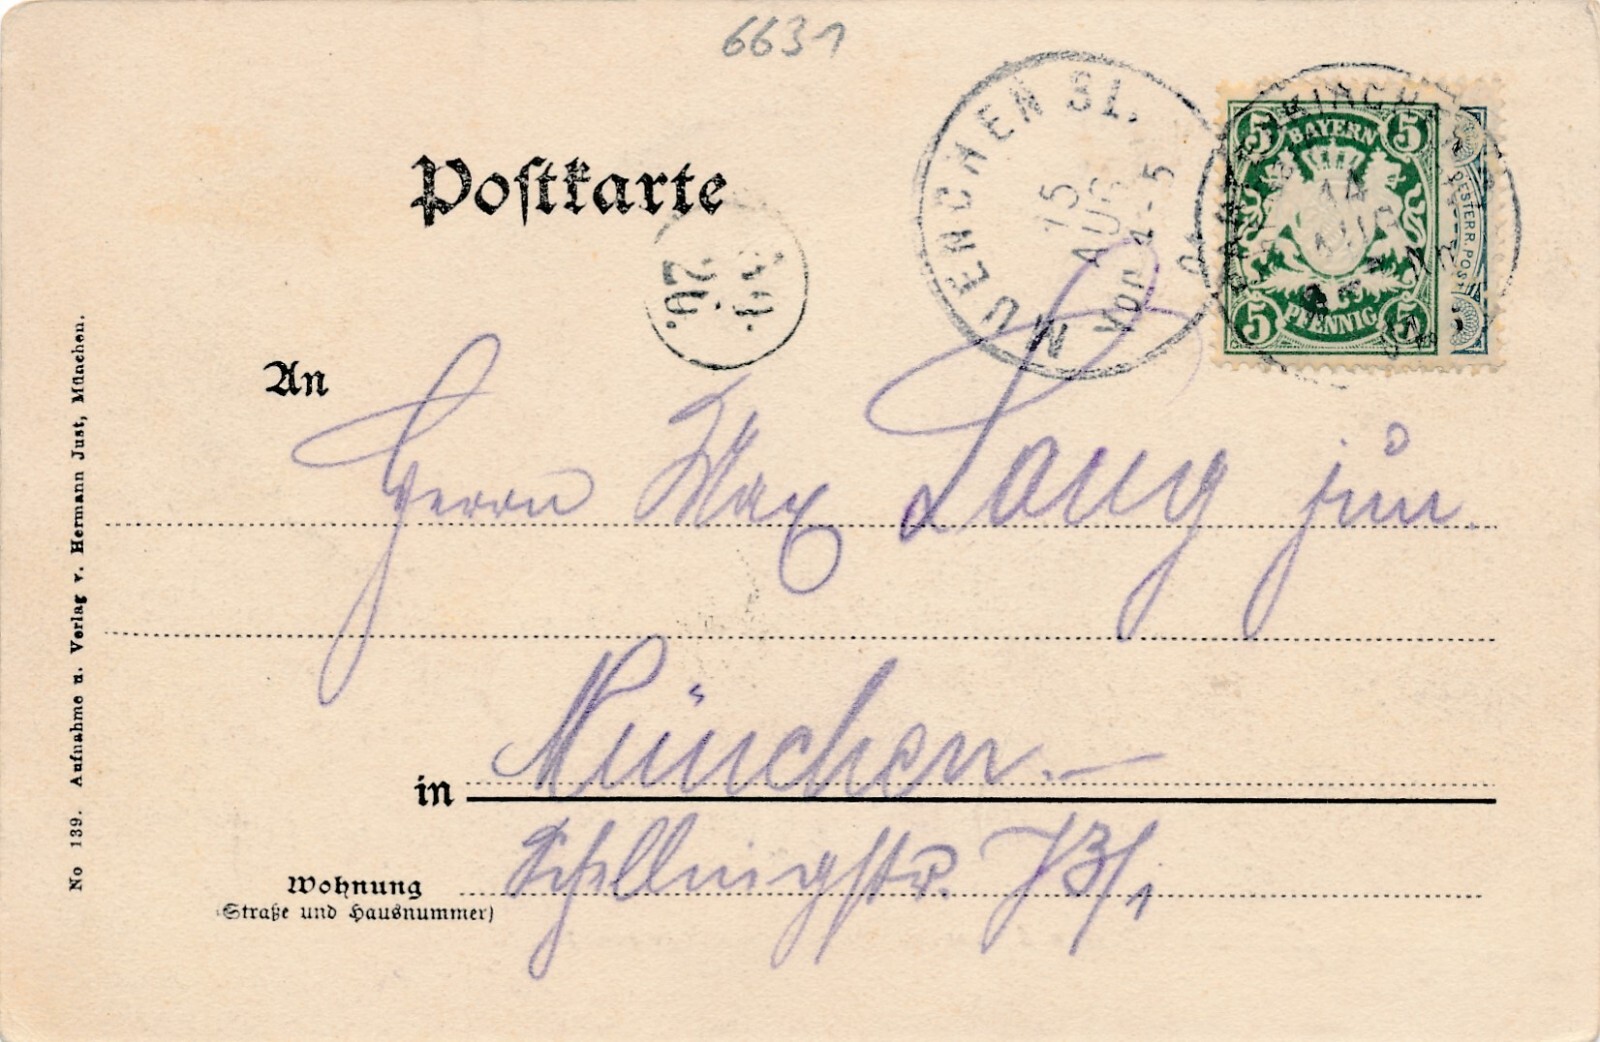 6631
Postkarte
MUENCHEN 31.
15
AUG
Vor 4-5
BAYERN
5 5
14
AUG
OESTERR. POST
5 5
PFENNIG
26.
An
Herrn Max Lang jun.
in München.—
Wohnung Schellingstr. 73/1
(Straße und Hausnummer)
No 139. Aufnahme u. Verlag v. Hermann Just, München.